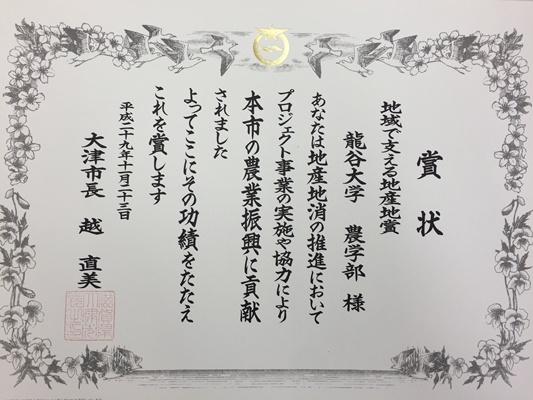 賞状
地域で支える地産地賞
龍谷大学 農学部 様
あなたは地産地消の推進において
プロジェクト事業の実施や協力により
本市の農業振興に貢献
されました
よってここにその功績をたたえ
これを賞します
平成二十九年十一月二十三日
大津市長 越 直美